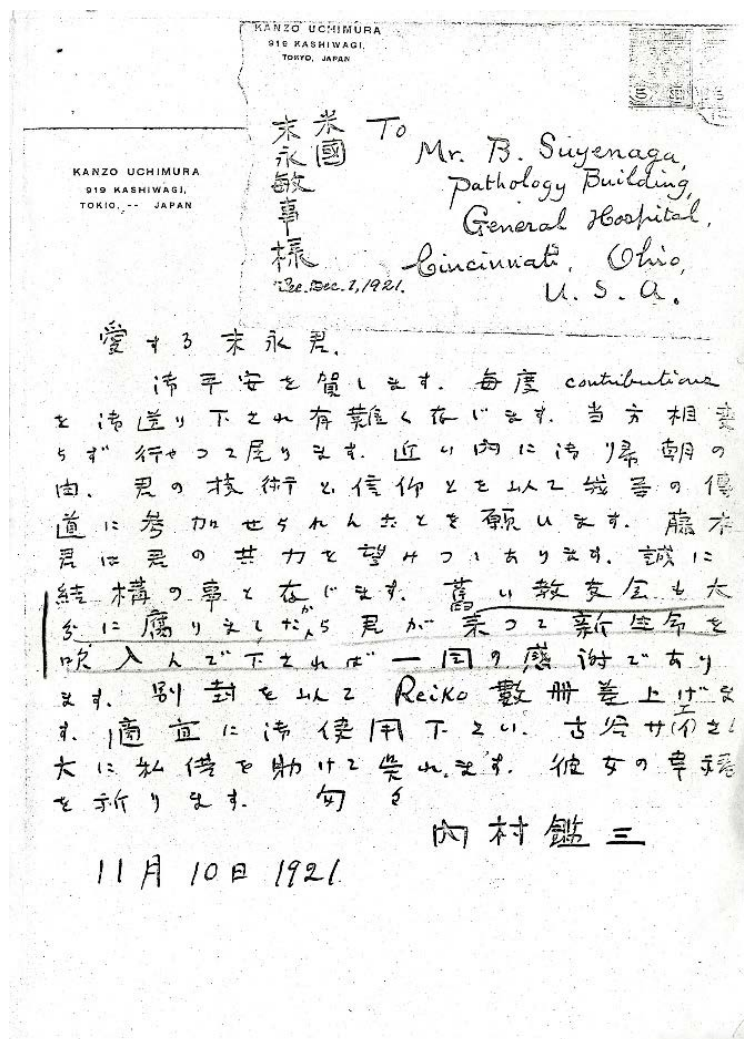 KANZO UCHIMURA
919 KASHIWAGI,
TOKYO, JAPAN
米國
末永敏事様
To
Mr. B. Suyenaga,
Pathology Building,
General Hospital,
Cincinnati, Ohio,
U. S. A.
Rec. Dec. 2, 1921.
KANZO UCHIMURA
919 KASHIWAGI,
TOKIO, -- JAPAN
愛する末永君.
御平安を賀します. 毎度 contributions
を御送り下され有難く存じます. 当方相変
らず行やつて居ります. 近い内に御帰朝の
由. 君の技術と信仰とを以て我等の傳
道に参加せられんことを願います. 藤本
君は君の共力を望みつゝあります. 誠に
結構の事と存じます. 舊い教友会も大
分に腐りましたから君が来つて新生命を
吹入んで下されば一同の感謝であり
ます. 別封を以て Reiko 数冊差上げま
す. 適宜に御使用下さい. 古
大に私供を助けて呉れます. 彼女の幸福
を祈ります. 匆々
内村鑑三
11月10日 1921